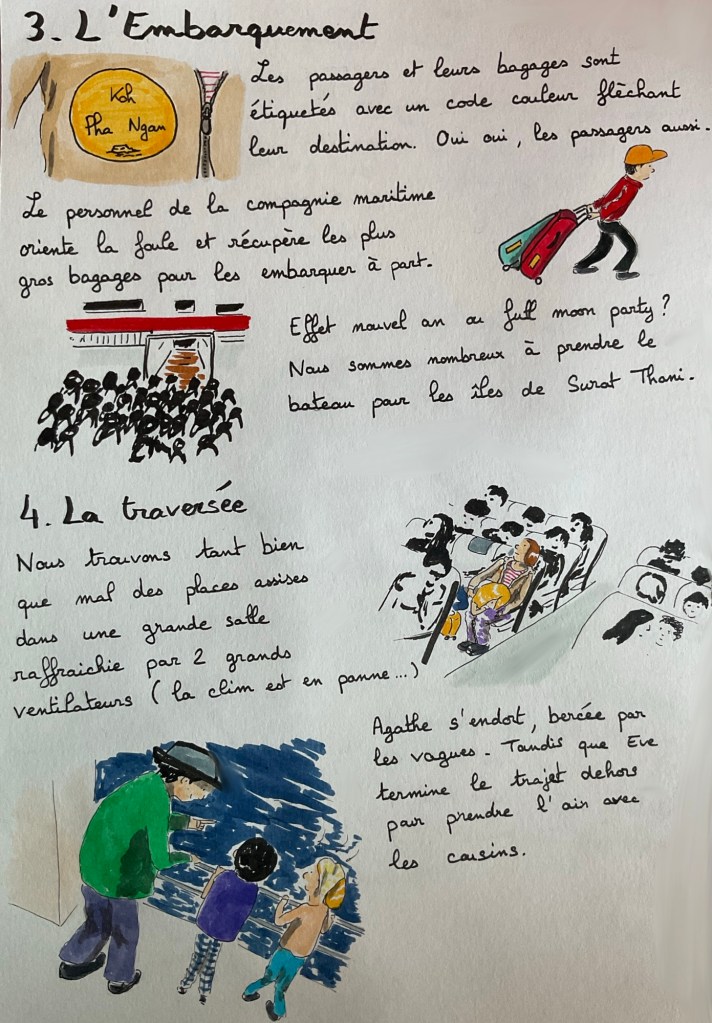 3. L'Embarquement
Koh
Pha Ngan
Les passagers et leurs bagages sont
étiquetés avec un code couleur flèchant
leur destination. Oui oui, les passagers aussi.
Le personnel de la compagnie maritime
oriente la foule et récupère les plus
gros bagages pour les embarquer à part.
Effet nouvel an ou full moon party ?
Nous sommes nombreux à prendre le
bateau pour les îles de Surat Thani.
4. La traversée
Nous trouvons tant bien
que mal des places assises
dans une grande salle
raffraichie par 2 grands
ventilateurs (la clim est en panne...)
Agathe s'endort, bercée par
les vagues. Tandis que Eve
termine le trajet dehors
pour prendre l'air avec
les cousins.